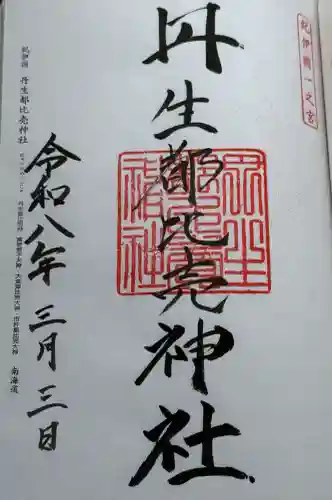 紀伊國一之宮
丹生都比売神社
丹生都比賣神社
令和八年三月三日
紀伊国 丹生都比売神社
南海道